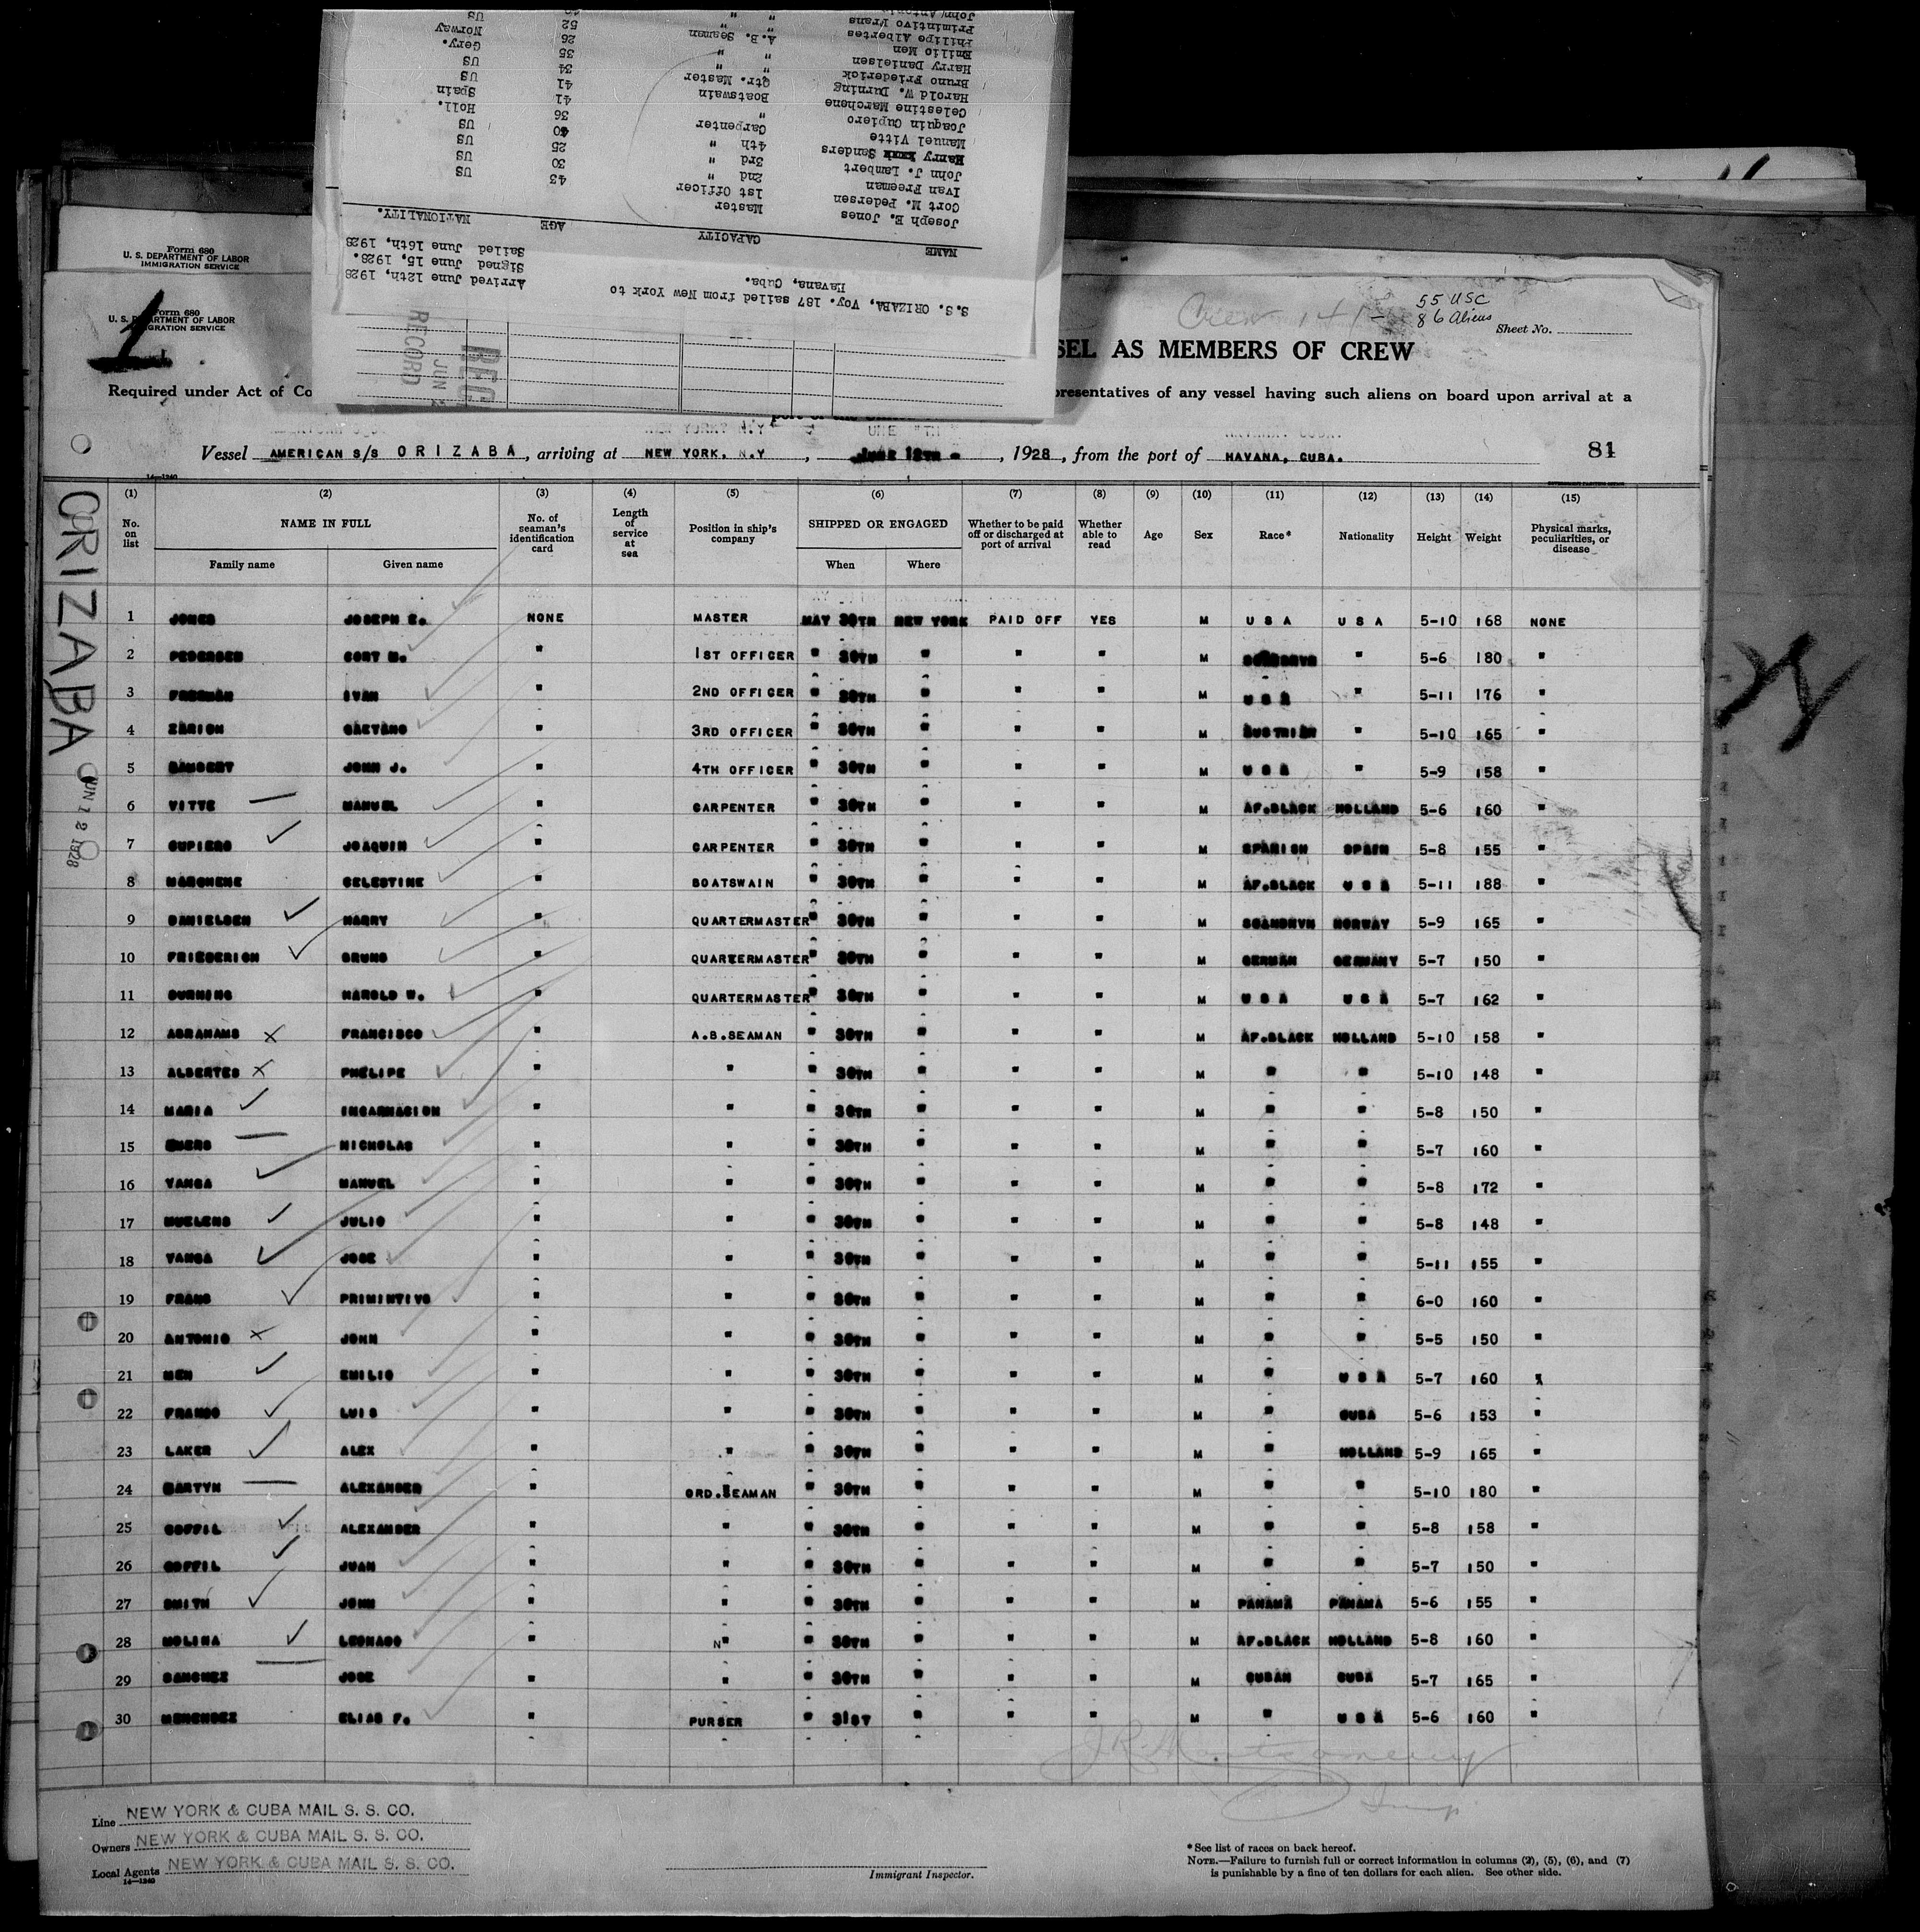 S.S. ORIZABA, Voy. 187 sailed from New York to
Havana, Cuba.
Arrived June 12th, 1928
Signed June 15, 1928.
Sailed June 16th, 1928
NAME CAPACITY AGE NATIONALITY.
Joseph E. Jones Master
Cort M. Pedersen 1st Officer 43 US
Ivan Freeman 2nd " 30 US
John J. Lambert 3rd " 25 US
Harry Sanders 4th " 40 US
Manuel Vitte Carpenter 36 Holl.
Joaquin Cupiero " 41 Spain
Celestine Marchene Boatswain 41 US
Harold W. Durning Qtr. Master 34 US
Bruno Friederick " " 35 Gery.
Harry Danielsen " " 26 Norway
Emilio Men A.B. Seaman 52 US
Philipe Albertes " "
Primintivo Frans " "
John Antonio
RECORD
JUN
Form 680
U. S. DEPARTMENT OF LABOR
IMMIGRATION SERVICE
Form 680
U. S. DEPARTMENT OF LABOR
IGRATION SERVICE
1
Crew 141 -
55 USC
86 Aliens
Sheet No.
SEL AS MEMBERS OF CREW
Required under Act of Co
presentatives of any vessel having such aliens on board upon arrival at a
Vessel AMERICAN S/S ORIZABA, arriving at NEW YORK, N.Y, JUNE 12TH -, 1928, from the port of HAVANA, CUBA.
81
14—1240
ORIZABA
JUN 12 1928
(1) (2) (3) (4) (5) (6) (7) (8) (9) (10) (11) (12) (13) (14) (15)
No. on list NAME IN FULL No. of seaman's identification card Length of service at sea Position in ship's company SHIPPED OR ENGAGED Whether to be paid off or discharged at port of arrival Whether able to read Age Sex Race* Nationality Height Weight Physical marks, peculiarities, or disease
Family name Given name When Where
1 JONES JOSEPH E. NONE MASTER MAY 30TH NEW YORK PAID OFF YES M U S A U S A 5-10 168 NONE
2 PEDERSEN CORT M. " 1ST OFFICER " 30TH " " " M " 5-6 180 "
3 FREEMAN IVAN " 2ND OFFICER " 30TH " " " M U S A " 5-11 176 "
4 ZARICH GAETANO " 3RD OFFICER " 30TH " " " M AUSTRIAN " 5-10 165 "
5 JOHN J. " 4TH OFFICER " 30TH " " " M U S A " 5-9 158 "
6 VITTE MANUEL " CARPENTER " 30TH " " " M AF.BLACK HOLLAND 5-6 160 "
7 CUPIERO JOAQUIN " CARPENTER " 30TH " " " M SPANISH SPAIN 5-8 155 "
8 MARCHENE CELESTINE " BOATSWAIN " 30TH " " " M AF.BLACK U S A 5-11 188 "
9 DANIELSEN HARRY " QUARTERMASTER " 30TH " " " M SCANDNVN NORWAY 5-9 165 "
10 FRIEDERICH BRUNO " QUARTERMASTER " 30TH " " " M GERMAN GERMANY 5-7 150 "
11 DURNING HAROLD W. " QUARTERMASTER " 30TH " " " M U S A U S A 5-7 162 "
12 ABRAHAMS FRANCISCO " A.B.SEAMAN " 30TH " " " M AF.BLACK HOLLAND 5-10 158 "
13 ALBERTES PHELIPE " " " 30TH " " " M " " 5-10 148 "
14 MARIA INCARNACION " " " 30TH " " " M " " 5-8 150 "
15 NICHOLAS " " " 30TH " " " M " " 5-7 160 "
16 YANGA MANUEL " " " 30TH " " " M " " 5-8 172 "
17 MUELENS JULIO " " " 30TH " " " M " " 5-8 148 "
18 YANGA JOSE " " " 30TH " " " M " " 5-11 155 "
19 FRANS PRIMINTIVO " " " 30TH " " " M " " 6-0 160 "
20 ANTONIO JOHN " " " 30TH " " " M " " 5-5 150 "
21 MEN EMILIO " " " 30TH " " " M " U S A 5-7 160 "
22 FRANCO LUIS " " " 30TH " " " M " CUBA 5-6 153 "
23 LAKER ALEX " " " 30TH " " " M " HOLLAND 5-9 165 "
24 MARTYN ALEXANDER " ORD.SEAMAN " 30TH " " " M " " 5-10 180 "
25 COFFIL ALEXANDER " " " 30TH " " " M " " 5-8 158 "
26 COFFIL JUAN " " " 30TH " " " M " " 5-7 150 "
27 SMITH JOHN " " " 30TH " " " M PANAMA PANAMA 5-6 155 "
28 MOLINA LEONARO " " " 30TH " " " M AF.BLACK HOLLAND 5-8 160 "
29 SANCHEZ JOSE " " " 30TH " " " M CUBAN CUBA 5-7 165 "
30 MENENDEZ ELIAS F. " PURSER " 31ST " " " M " U S A 5-6 160 "
J R Montgomery
Insp.
Line NEW YORK & CUBA MAIL S. S. CO.
Owners NEW YORK & CUBA MAIL S. S. CO.
Local Agents NEW YORK & CUBA MAIL S. S. CO.
14—1240
Immigrant Inspector.
*See list of races on back hereof.
NOTE.—Failure to furnish full or correct information in columns (2), (5), (6), and (7)
is punishable by a fine of ten dollars for each alien. See other side.